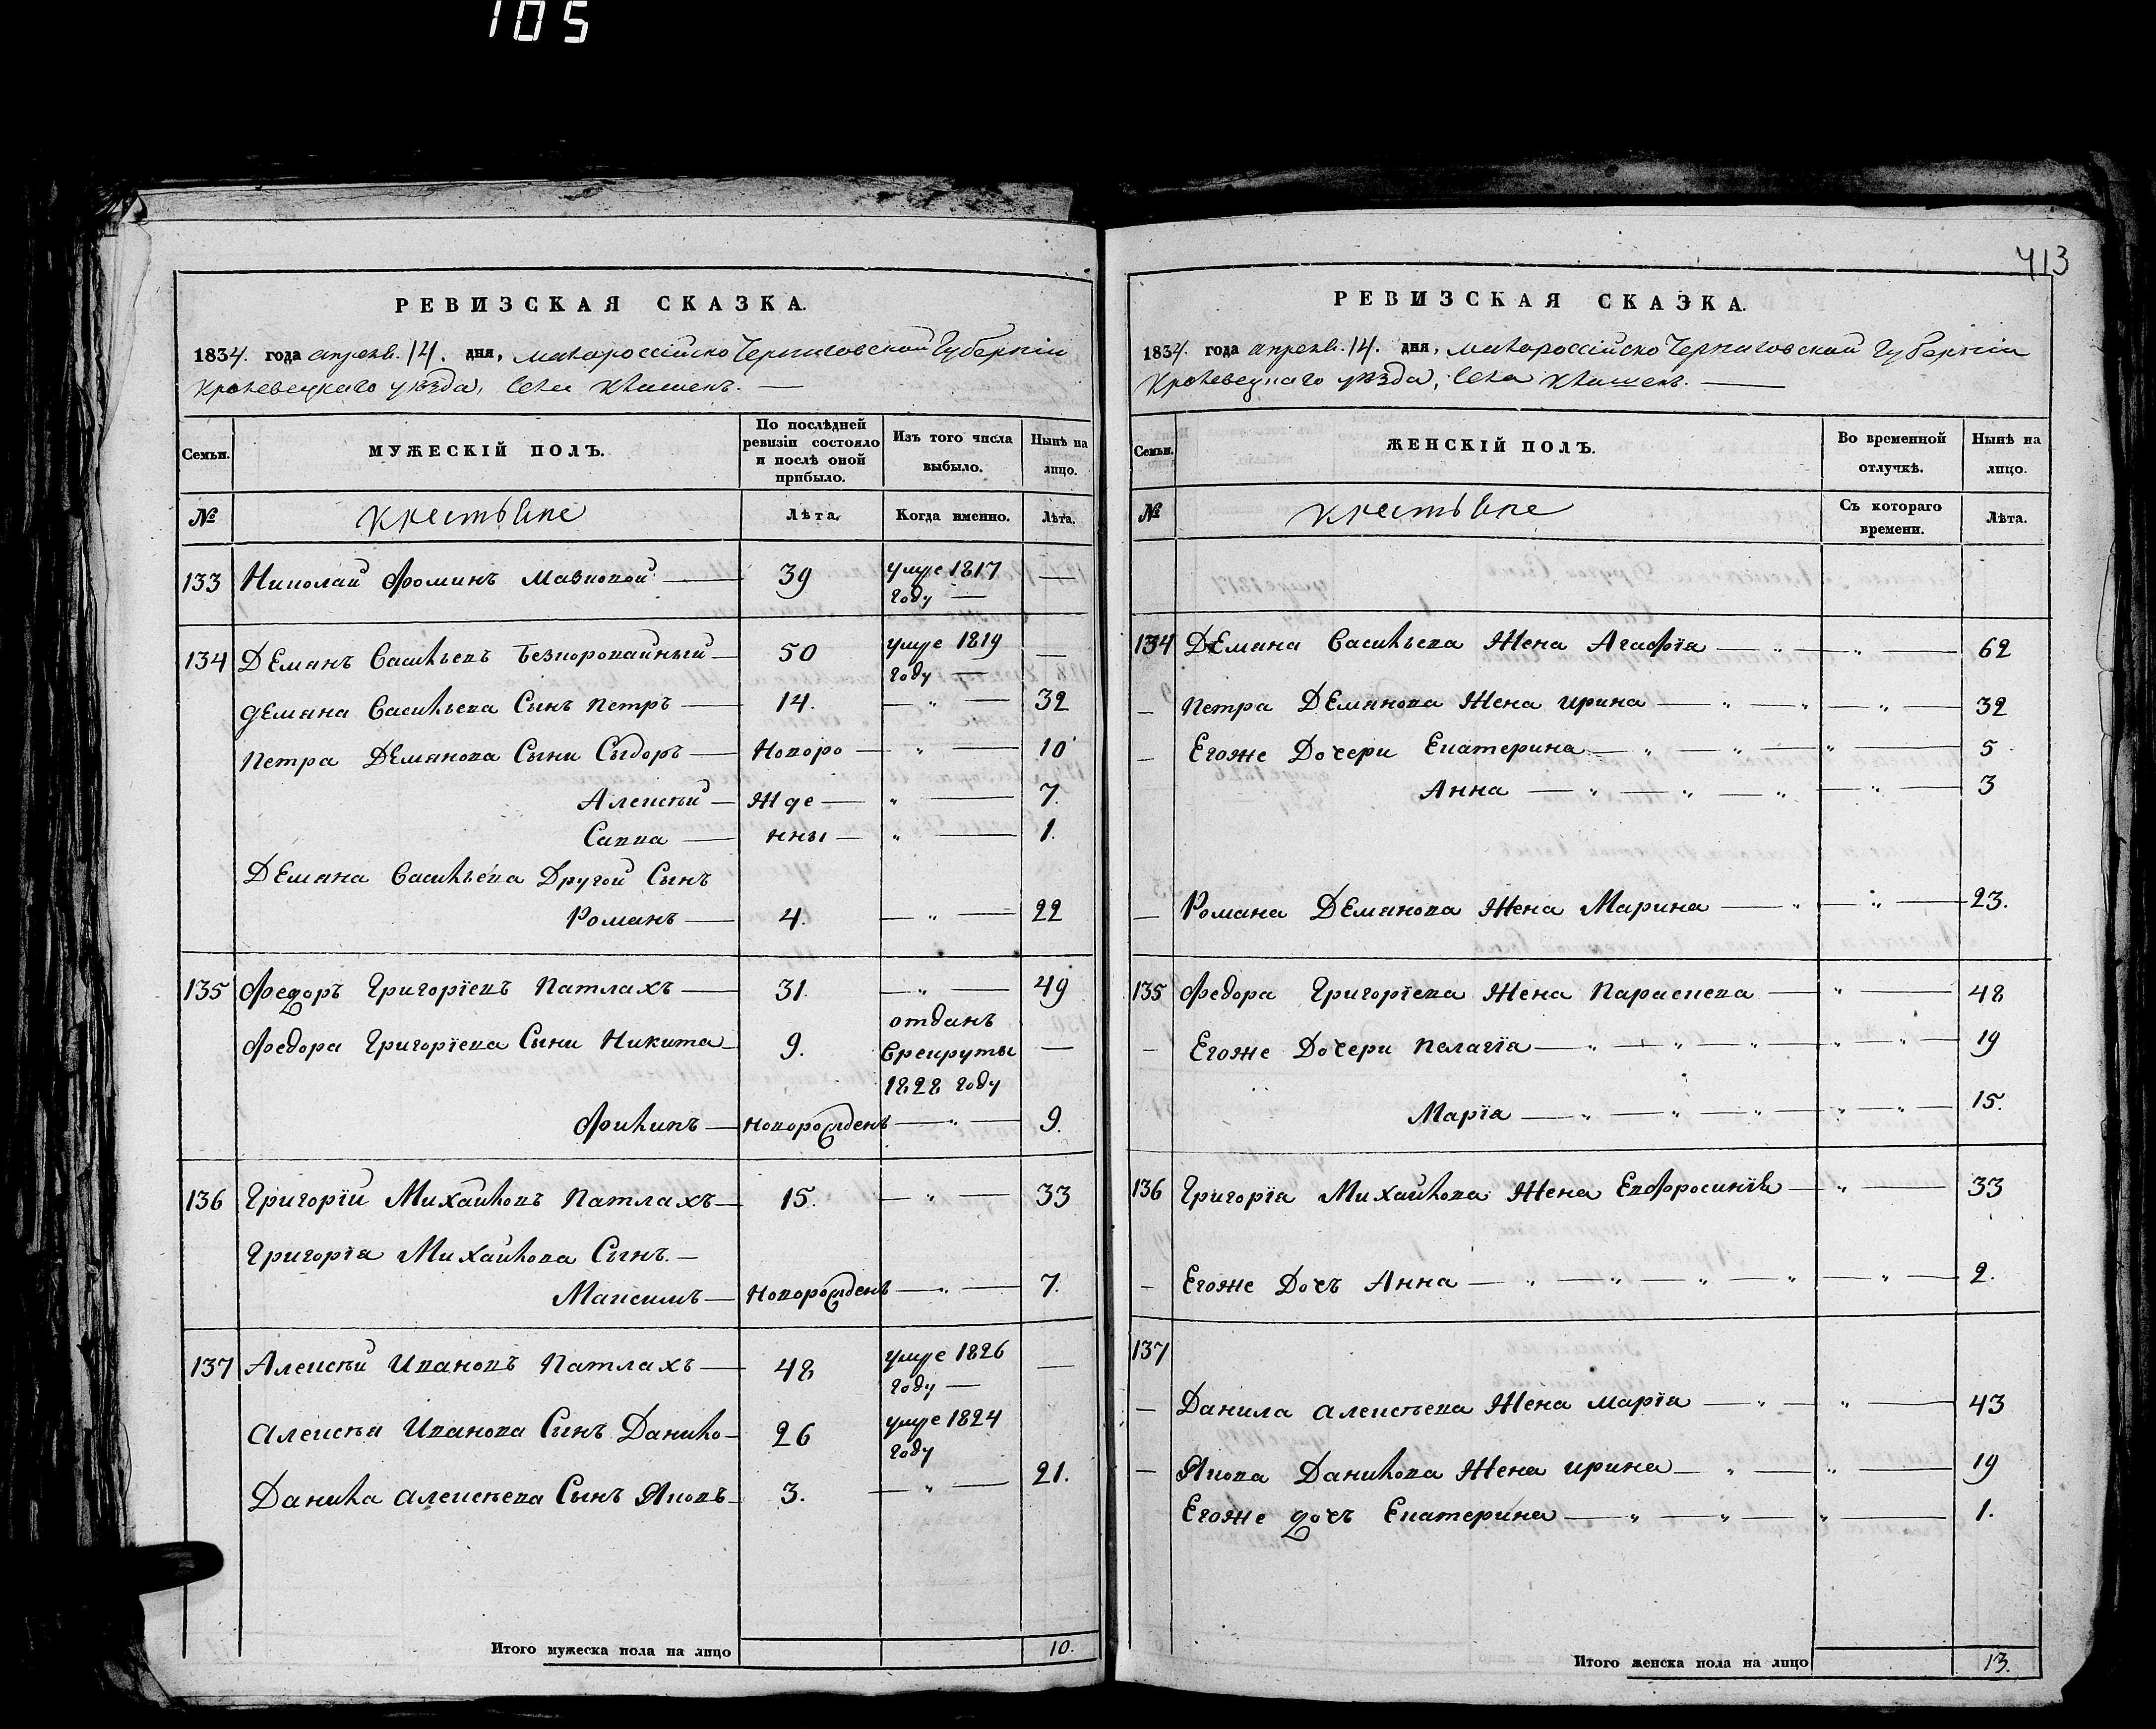 105
413
РЕВИЗСКАЯ СКАЗКА.
1834. года апреля. 14. дня, малороссійско Черниговской Губерніи
Кролевецкаго уѣзда, села Клишекъ.
Семьи.
МУЖЕСКІЙ ПОЛЪ.
По послѣдней ревизіи состояло и послѣ оной прибыло.
Изъ того числа выбыло.
Нынѣ на лицо.
№
крестьяне
Лѣта.
Когда именно.
Лѣта.
133 Николай Фоминъ Мавковой — 39 умре 1817 году — —
134 Деманъ Васильевъ Безпоровайный — 50 умре 1819 году — —
Демана Васильева Сынъ Петръ — 14. — " — 32
Петра Деманова Сыни Сыдоръ — Новоро — " — 10
Алексѣй — жде — " — 7.
Савва — нны — " — 1.
Демана Васильева Другой Сынъ
Романъ — 4. — " — 22
135 Федоръ Григоріевъ Патлахъ — 31. — " — 49
Федора Григоріева Сыни Никита — 9. отданъ в рекруты 1828 году —
Филипъ — новорожденъ — " — 9.
136 Григорій Михайловъ Патлахъ — 15. — " — 33
Григорія Михайлова Сынъ. —
Максимъ — новорожденъ — " — 7.
137 Алексѣй Ивановъ Патлахъ — 48 умре 1826 году — —
Алексѣя Иванова Сынъ Данило — 26 умре 1824 году
Данила Алексѣева Сынъ Яковъ — 3. — " — 21.
Итого мужеска пола на лицо 10.
РЕВИЗСКАЯ СКАЗКА.
1834. года апреля. 14. дня, малороссійско Черниговской Губерніи
Кролевецкаго уѣзда, села Клишекъ. —
Семьи.
ЖЕНСКІЙ ПОЛЪ.
Во временной отлучкѣ.
Нынѣ на лицо.
№
крестьяне
Съ котораго времени.
Лѣта.
134 Демана Васильева Жена Агафія — " — " — 62
— Петра Деманова Жена Ирина — " — " — " — 32
— Егоже Дочери Екатерина — " — " — " — 5
Анна — " — " — " — " — 3
— Романа Деманова Жена Марина — " — " — 23.
135 Федора Григоріева Жена Параскева — " — 48
— Егоже Дочери Пелагія — " — " — " — " — " — 19
Марія — " — " — " — " — " — 15.
136 Григорія Михайлова Жена Евфросинія — " — 33
— Егоже Дочъ Анна — " — " — " — " — " — 2.
137
— Данила Алексѣева Жена Марія — " — " — 43
— Якова Данилова Жена Ирина — " — " — 19
Егоже дочъ Екатерина — " — " — " — 1.
Итого женска пола на лицо 13.